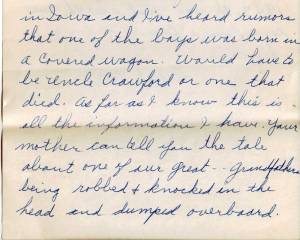 in Iowa and I've heard rumors
that one of the boys was born in
a covered wagon. Would have to
be Uncle Crawford or one that
died. As far as I know this is
all the information I have. Your
mother can tell you the tale
about one of our great-- Grandfathers
being robbed & knocked in the
head and dumped overboard.